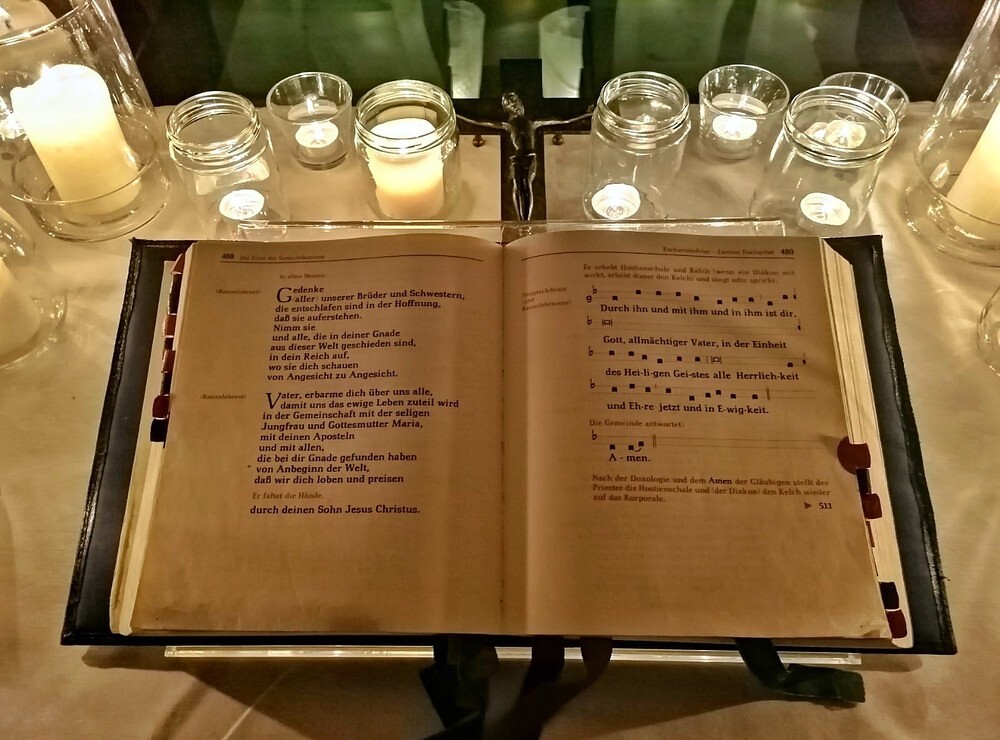 488 Die Feier der Gemeindemesse
In allen Messen:
(Konzelebrant)
Gedenke
(aller) unserer Brüder und Schwestern,
die entschlafen sind in der Hoffnung,
daß sie auferstehen.
Nimm sie
und alle, die in deiner Gnade
aus dieser Welt geschieden sind,
in dein Reich auf,
wo sie dich schauen
von Angesicht zu Angesicht.
(Konzelebrant)
Vater, erbarme dich über uns alle,
damit uns das ewige Leben zuteil wird
in der Gemeinschaft mit der seligen
Jungfrau und Gottesmutter Maria,
mit deinen Aposteln
und mit allen,
die bei dir Gnade gefunden haben
von Anbeginn der Welt,
daß wir dich loben und preisen
Er faltet die Hände.
durch deinen Sohn Jesus Christus.
Eucharistiefeier - Zweites Hochgebet 489
Er erhebt Hostienschale und Kelch (wenn ein Diakon mit
wirkt, erhebt dieser den Kelch) und singt oder spricht:
Hauptzelebrant
(und
Konzelebranten)
Durch ihn und mit ihm und in ihm ist dir,
Gott, allmächtiger Vater, in der Einheit
des Hei-li-gen Gei-stes alle Herrlich-keit
und Eh-re jetzt und in E-wig-keit.
Die Gemeinde antwortet:
A - men.
Nach der Doxologie und dem Amen der Gläubigen stellt der
Priester die Hostienschale und (der Diakon) den Kelch wieder
auf das Korporale.
▶ 511